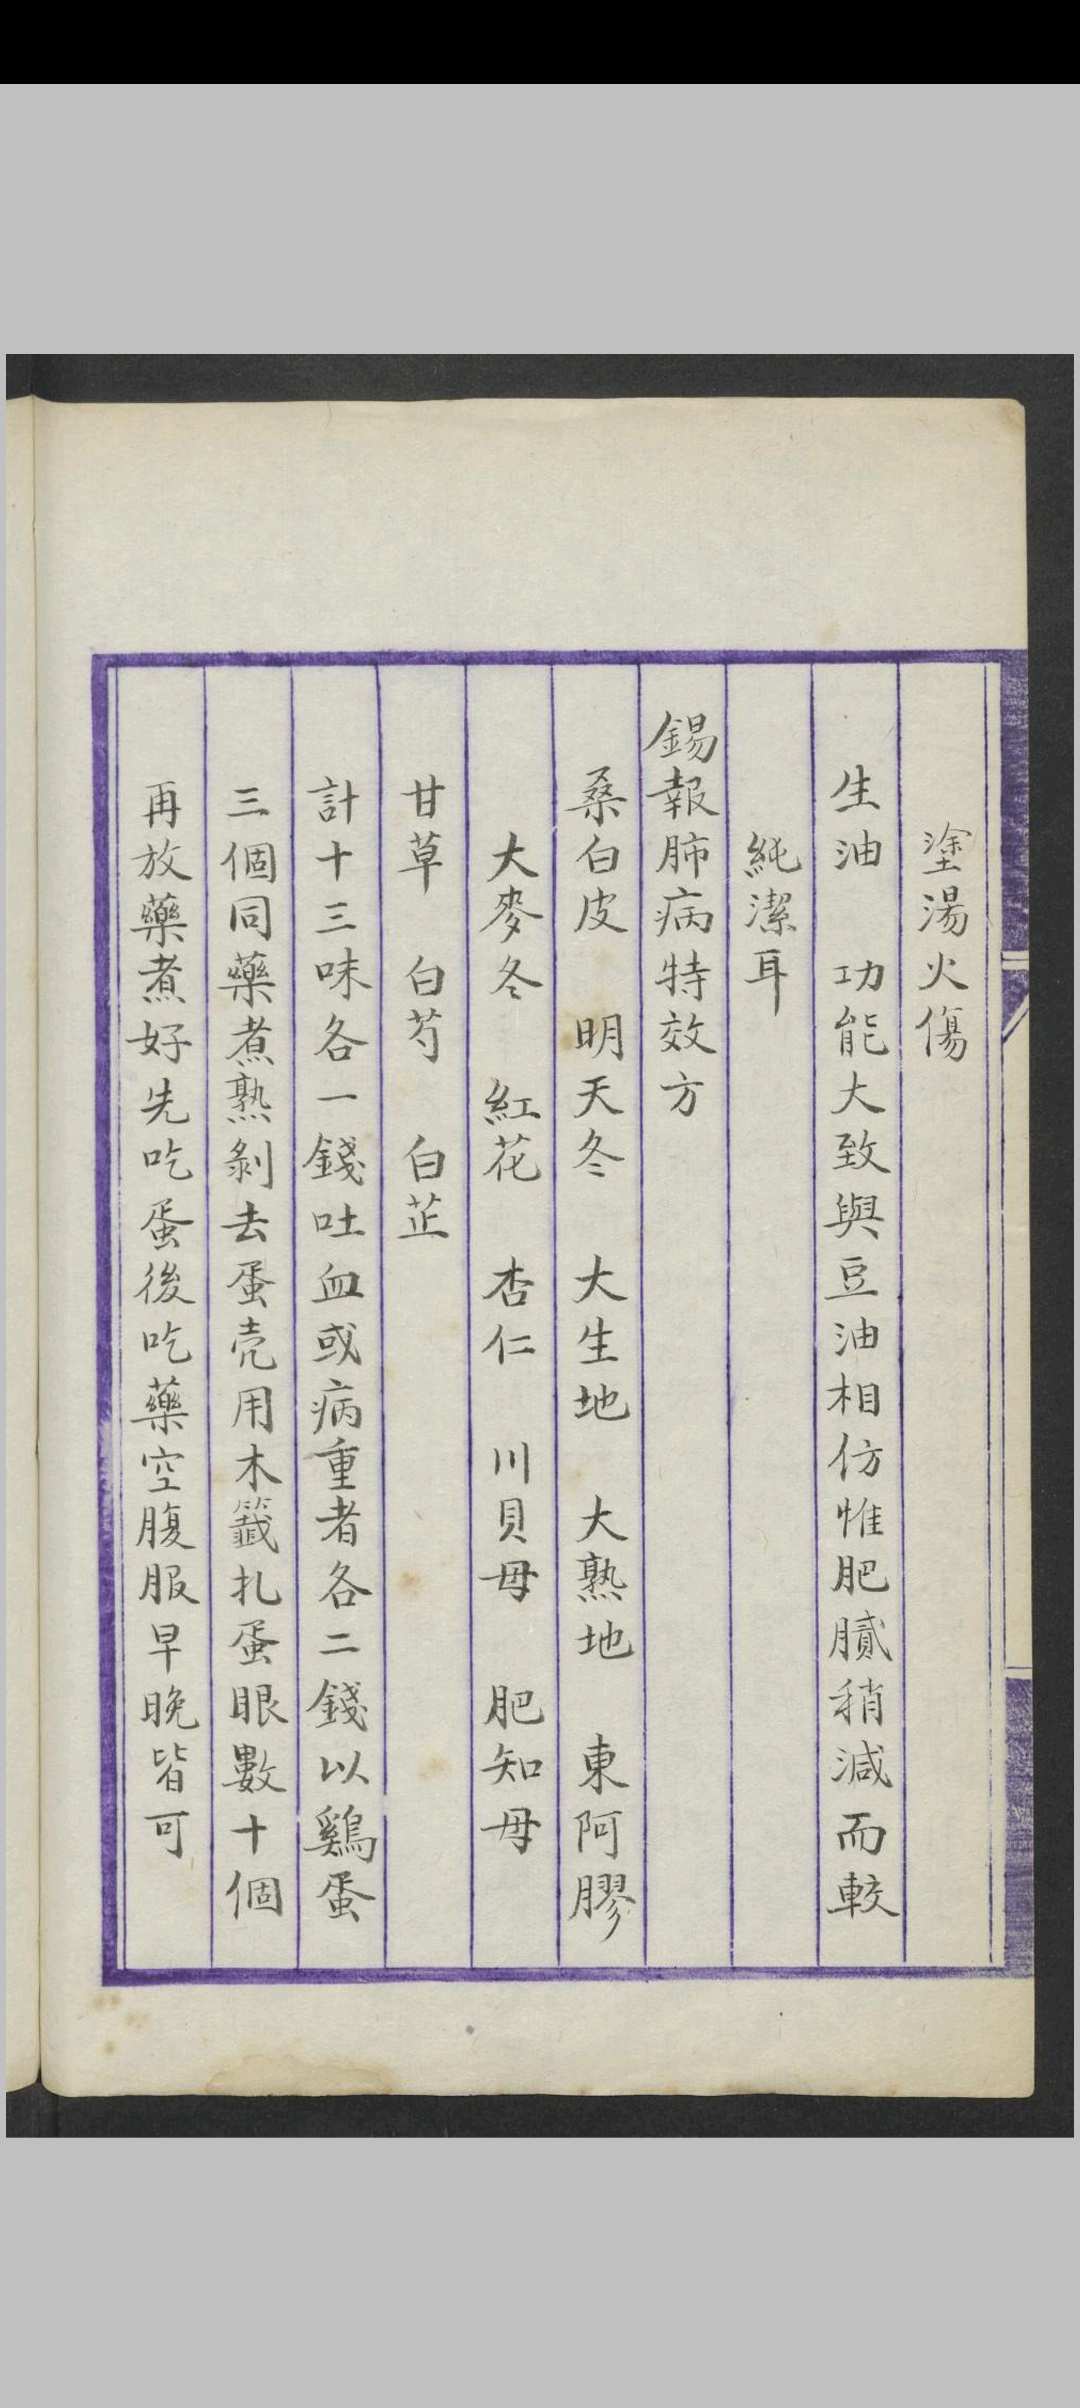 塗湯火傷
生油　功能大致與豆油相仿惟肥膩稍減而較
純潔耳
錫報肺病特效方
桑白皮　明天冬　大生地　大熟地　東阿膠
大麥冬　紅花　杏仁　川貝母　肥知母
甘草　白芍　白芷
計十三味各一錢吐血或病重者各二錢以鷄蛋
三個同藥煮熟剝去蛋壳用木籤扎蛋眼數十個
再放藥煮好先吃蛋後吃藥空腹服早晚皆可